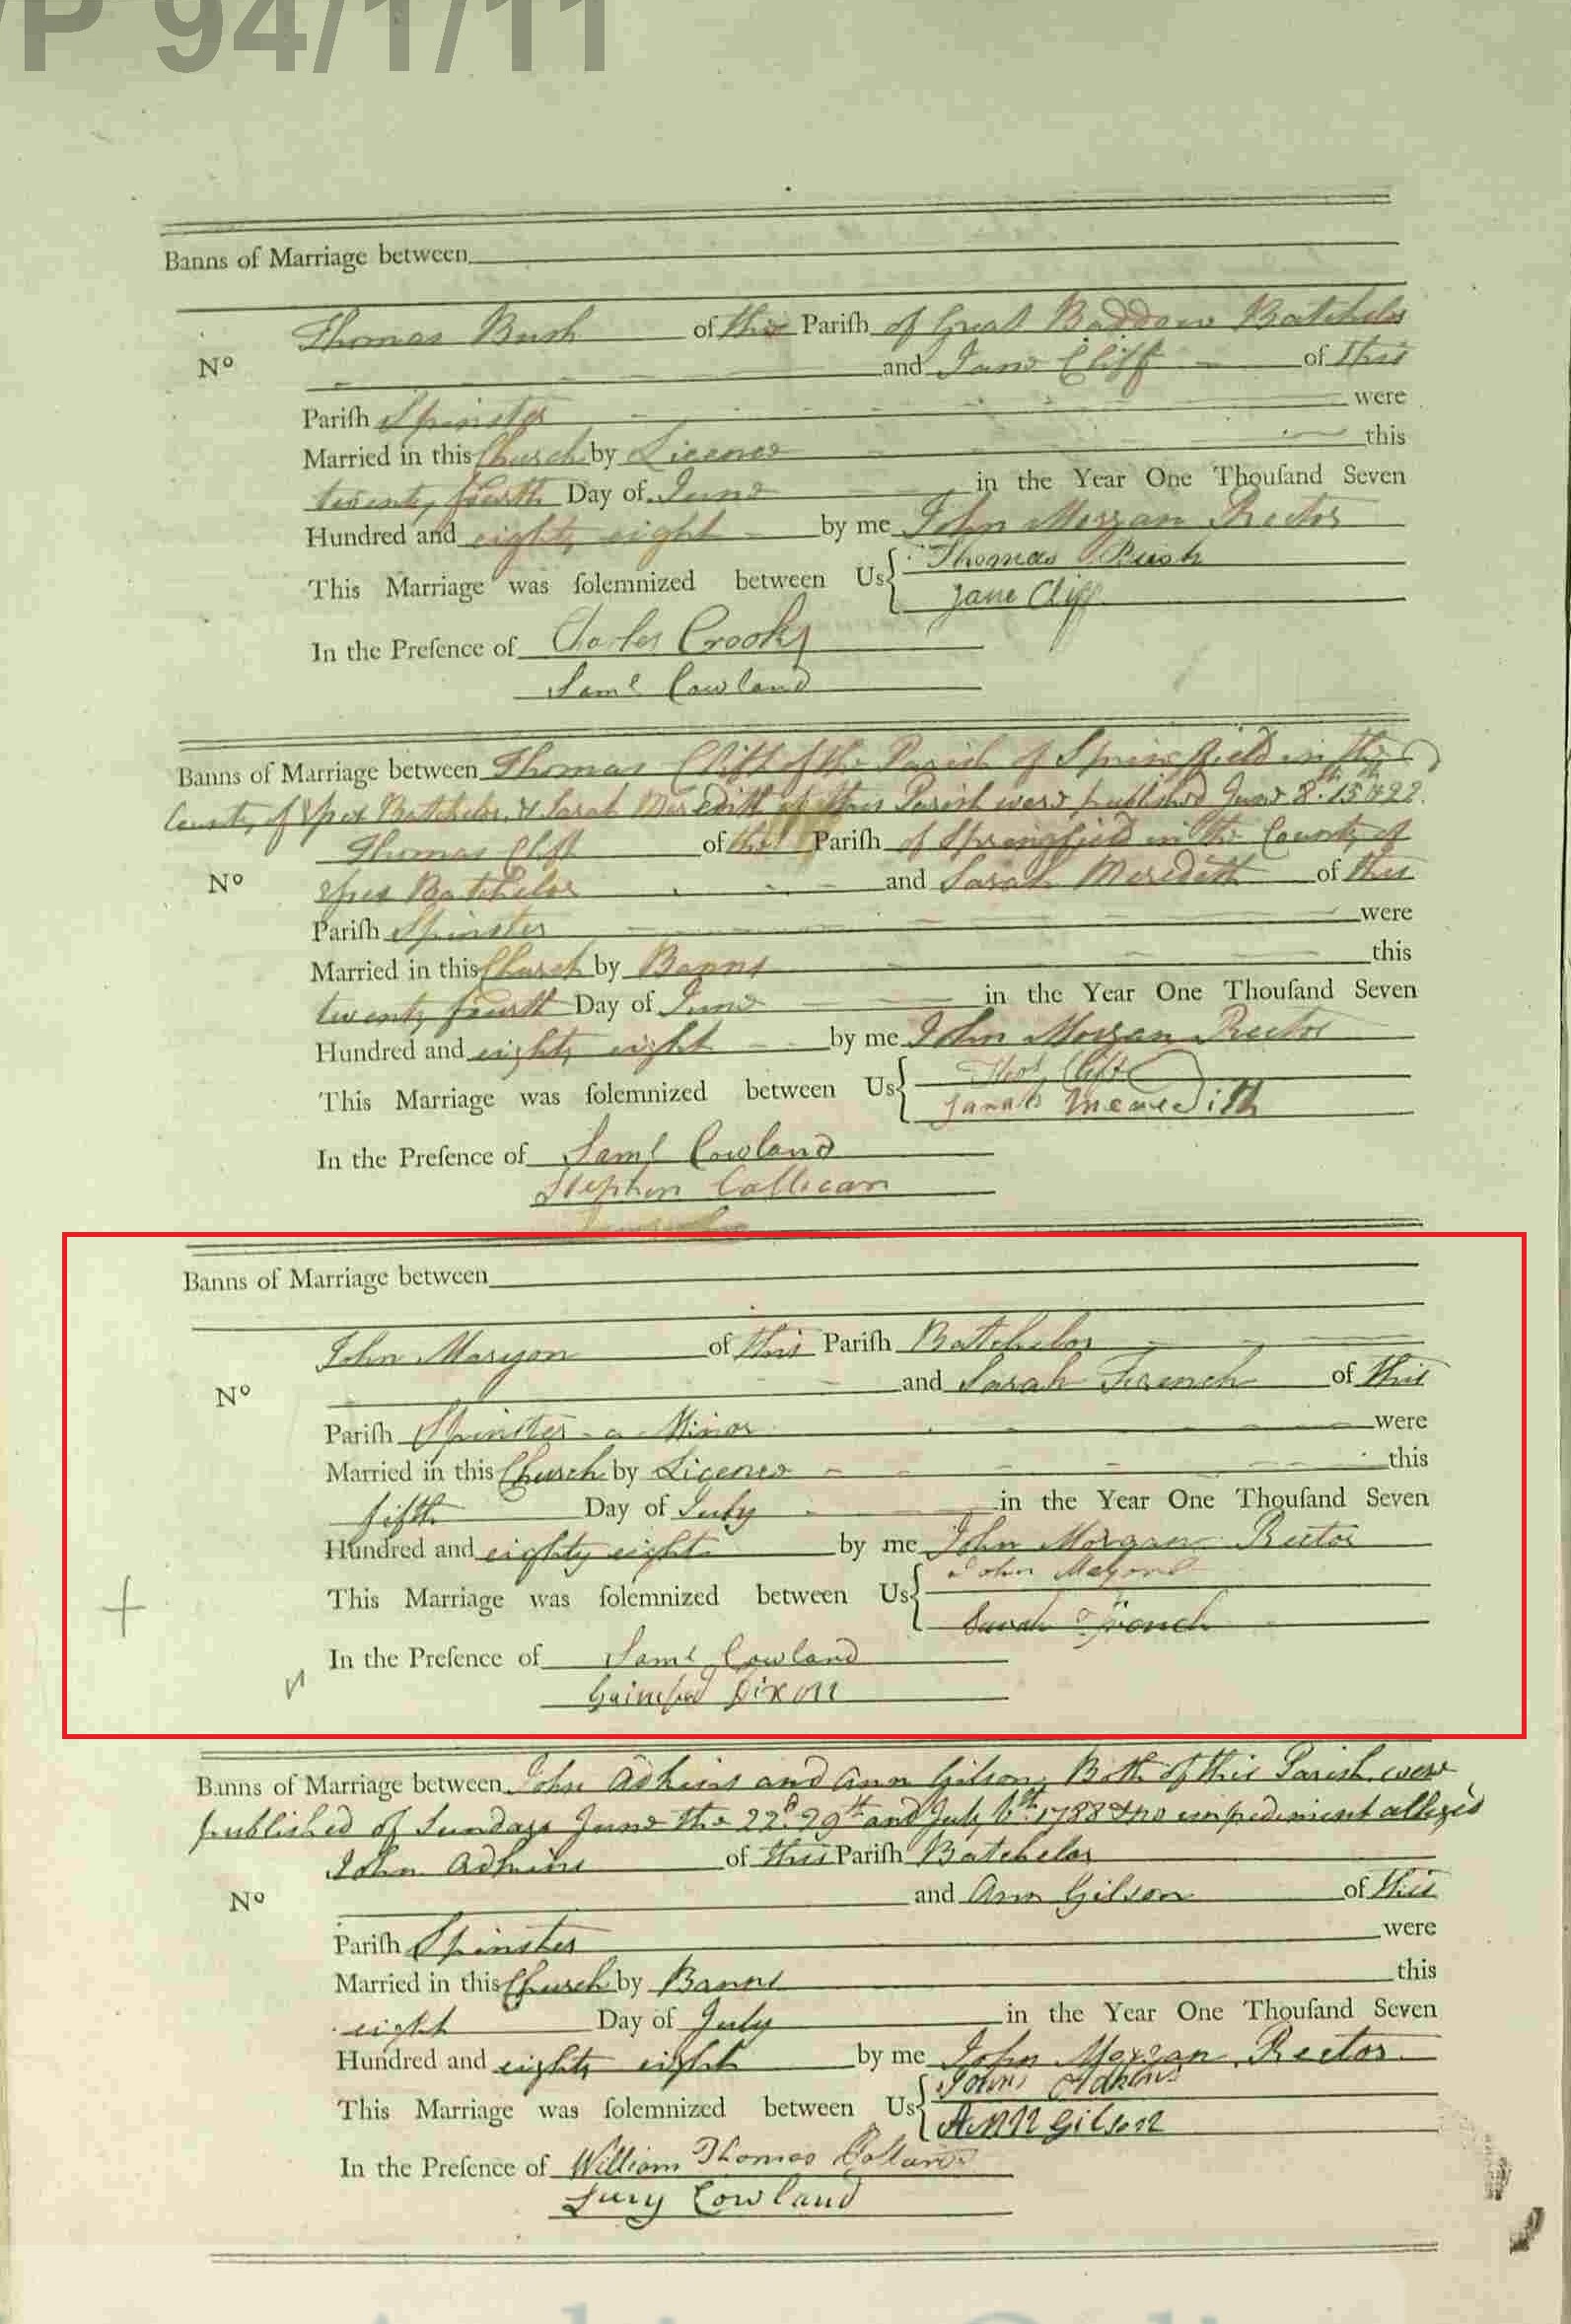 P 94/1/11
Banns of Marriage between
Thomas Bush of this Pariſh of Great Baddow Batchelor
Nº and Jane Cliff of this
Pariſh Spinster were
Married in this Church by Licence this
twenty fourth Day of June in the Year One Thouſand Seven
Hundred and eighty eight by me John Morgan Rector
This Marriage was ſolemnized between Us Thomas Bush
Jane Cliff
In the Preſence of Charles Crooks
Saml Cowland
Banns of Marriage between Thomas Clift of the Parish of Springfield in the
County of Essex Batchelor, & Sarah Meredith of this Parish were published June 8th 15th & 22.
Thomas Clift of the Pariſh of Springfield in the County of
Nº Essex Batchelor and Sarah Meredith of this
Pariſh Spinster were
Married in this Church by Banns this
twenty fourth Day of June in the Year One Thouſand Seven
Hundred and eighty eight by me John Morgan Rector
This Marriage was ſolemnized between Us Thos Clift
Sarah Meredith
In the Preſence of Saml Cowland
Stephen Callican
Banns of Marriage between
John Maryon of this Pariſh Batchelor
Nº and Sarah French of this
Pariſh Spinster - a Minor were
Married in this Church by Licence this
fifth Day of July in the Year One Thouſand Seven
Hundred and eighty eight by me John Morgan Rector
This Marriage was ſolemnized between Us John Mayon
Sarah French
In the Preſence of Saml Cowland
Dixon
Banns of Marriage between John Adkins and Ann Gilson, Both of this Parish, were
published of Sundays June the 22d 29th and July 6th 1788 & no impediment alleged
John Adkins of this Pariſh Batchelor
Nº and Ann Gilson of this
Pariſh Spinster were
Married in this Church by Banns this
eight Day of July in the Year One Thouſand Seven
Hundred and eighty eight by me John Morgan Rector
This Marriage was ſolemnized between Us John Adkins
Ann Gilson
In the Preſence of William Thomas
Lucy Cowland